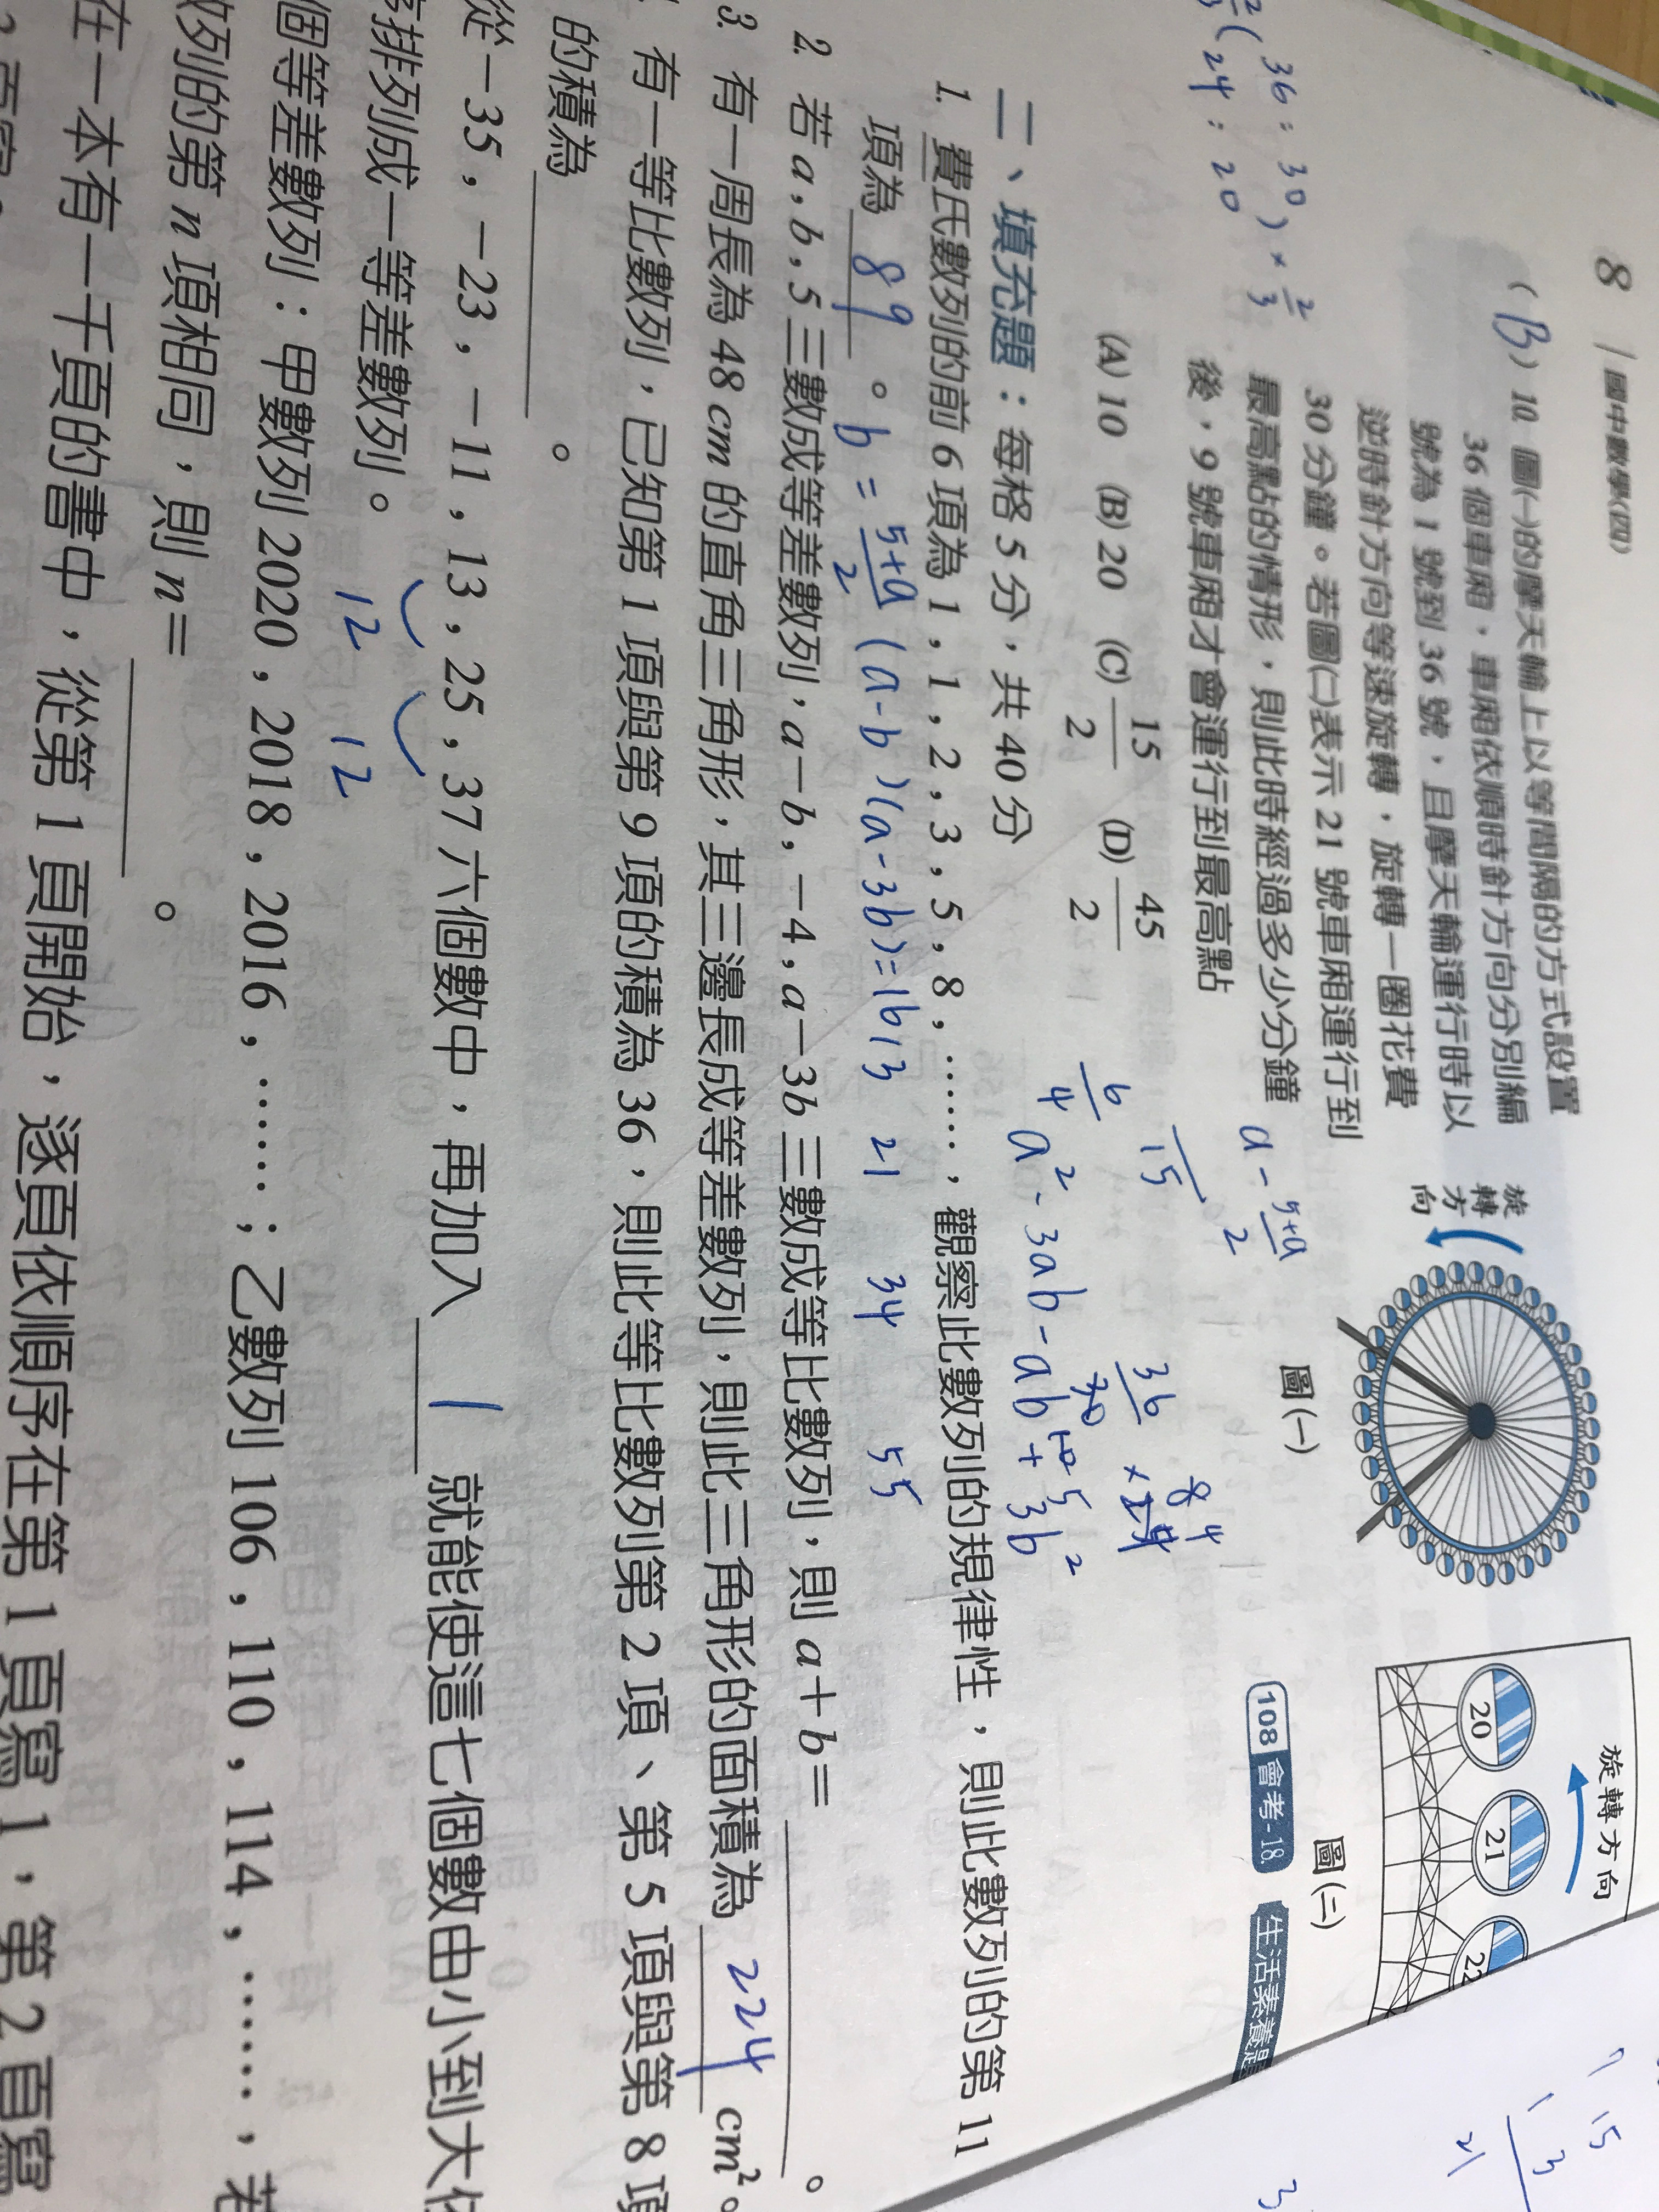 8 / 國中數學(四)
(B) 10. 圖(一)的摩天輪上以等間隔的方式設置
36 個車廂，車廂依順時針方向分別編
號為 1 號到 36 號，且摩天輪運行時以
逆時針方向等速旋轉，旋轉一圈花費
30 分鐘。若圖(二)表示 21 號車廂運行到
最高點的情形，則此時經過多少分鐘
後，9 號車廂才會運行到最高點
(A) 10 (B) 20 (C) 15/2 (D) 45/2
旋轉方向
圖(一)
旋轉方向
20 21 22
圖(二)
108 會考-18.
生活素養題
36 : 30 ) × 2/3
24 : 20
a - 5+a/2
15
6/4
a² - 3ab - ab + 3b²
二、填充題：每格 5 分，共 40 分
1. 費氏數列的前 6 項為 1，1，2，3，5，8，……，觀察此數列的規律性，則此數列的第 11
項為 89 。
b = 5+a/2 (a-b)(a-3b)=16
13 21 34 55
2. 若 a，b，5 三數成等差數列，a－b，－4，a－3b 三數成等比數列，則 a＋b＝ 。
3. 有一周長為 48 cm 的直角三角形，其三邊長成等差數列，則此三角形的面積為 224 cm²。
有一等比數列，已知第 1 項與第 9 項的積為 36，則此等比數列第 2 項、第 5 項與第 8 項
的積為 。
從－35，－23，－11，13，25，37 六個數中，再加入 1 就能使這七個數由小到大依
排列成一等差數列。
12 12
個等差數列：甲數列 2020，2018，2016，……；乙數列 106，110，114，……，若
數列的第 n 項相同，則 n＝ 。
在一本有一千頁的書中，從第 1 頁開始，逐頁依順序在第 1 頁寫 1，第 2 頁寫